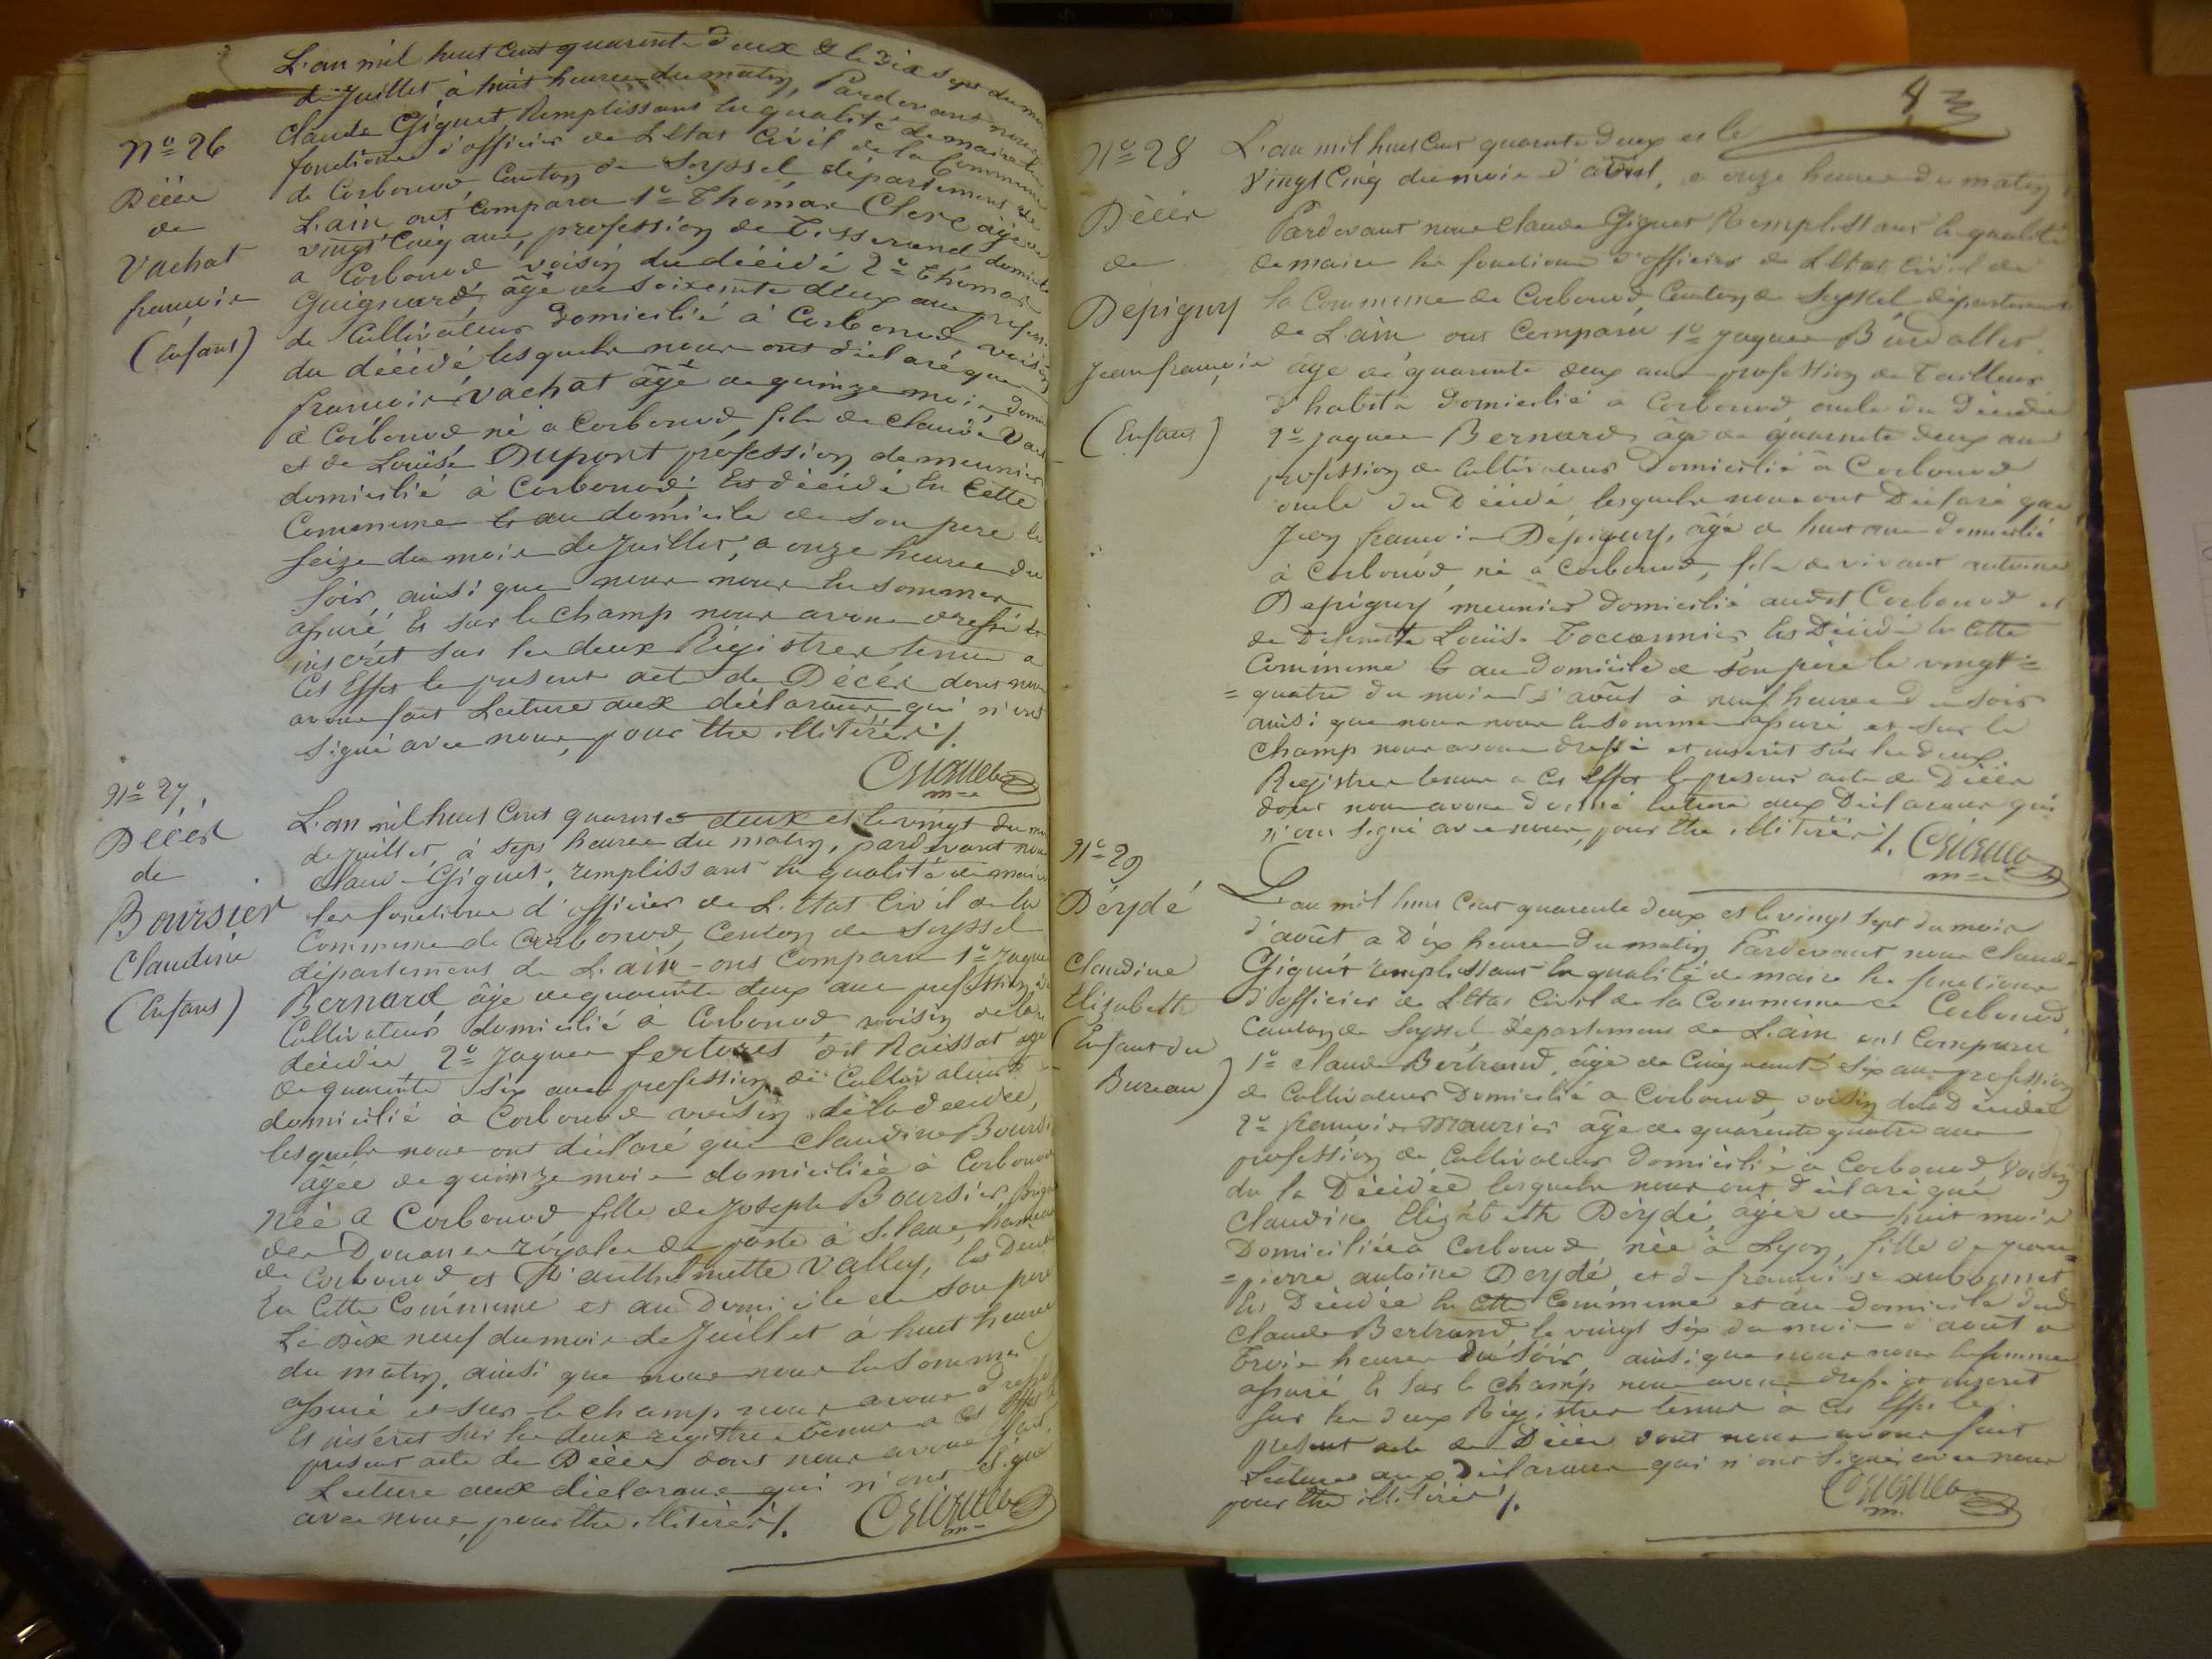 L'an mil huit Cent quarante deux & le Dix Sept du mois
de Juillet, à huit heures du matin, Pardevant nous
Claude Giguet, Remplissant la qualité de maire les
fonctions d'officier de L'Etat Civil de la Commune
de Corbonod, Canton de Seyssel, département de
L'ain ont Comparu 1º Thomas Clerc âgé de
vingt Cinq ans, profession de Tisserand domicilié
a Corbonod voisin du décédé 2º Thomas
Guignard, âgé de soixante deux ans profession
de Cultivateur domicilié à Corbonod voisin
du décédé lesquels nous ont déclaré que
francois Vachat âgé de quinze mois, domicilié
à Corbonod né a Corbonod, fils de Claude Vachat
et de Louïse Dupont proféssion de meunier
domicilié à Corbonod; Est décédé en Cette
Commune Et au domicile de son pere le
seize du mois de Juillet, a onze heures du
soir, ainsi que nous nous en sommes
assuré Et sur le champ nous avons dressé et
inscrit sur les deux Régistres tenus a
Cet Effet le present acte de Décès dont nous
avons fait Lecture aux déclarants qui n'ont
signé avec nous, pour être illitérés /.
CGiguet
m=e
Nº 26
Décès
de
Vachat
francois
(Enfant)
Nº 27
Décès
de
Boursier
Claudine
(Enfant)
L'an mil huit Cent quarante deux et le vingt du mois
de Juillet, à sept heures du matin, pardevant nous
Claude Giguet, remplissant la qualité de maire
les fonctions d'officier de L'Etat Civil de la
Commune de Corbonod, Canton de Seyssel
département de L'ain - ont Comparu 1º Jaques
Bernard âgé de quarante deux ans profession de
Cultivateur domicilié à Corbonod voisin de la
décédée 2º Jaques fertoret dit Raissat âgé
de quarante six ans profession de Cultivateur
domicilié à Corbonod voisin de la décédée,
lesquels nous ont déclaré que Claudine Boursier
âgée de quinze mois domiciliée à Corbonod
Née a Corbonod fille de Joseph Boursier,
des Douanes royales de poste à hameau
de Corbonod et D'anthelmette Vallet, Est Décédée
En Cette Commune et au Domicile de son pere
Le Dix neuf du mois de Juillet à huit heures
du matin, ainsi que nous nous en sommes
assuré et sur le champ, nous avons dressé
Et inscrit sur les deux registres tenus a Cet Effet le
present acte de Décès dont nous avons fait
Lecture aux déclarants qui n'ont signé
avec nous, pour être illitérés /.
CGiguet
m=e
8
Nº 28
Décès
de
Dépigny
Jean francois
(Enfant)
L'an mil huit Cent quarante deux et le
vingt Cinq du mois d'aout, a onze heures du matin
Pardevant nous Claude Giguet Remplissant la qualité
de maire les fonctions d'officier de L'Etat Civil de
la Commune de Corbonod, Canton de Seyssel, département
de L'ain ont Comparu 1º Jaques Burdallet
âgé de quarante deux ans profession de Tailleur
d'habits domicilié a Corbonod oncle du Décédé
2º Jaques Bernard, âgé de quarante deux ans
profession de Cultivateur Domicilié à Corbonod
oncle du Décédé, lesquels nous ont Déclaré que
Jean francois Dépigny, âgé de huit ans domicilié
à Corbonod, né a Corbonod, fils de vivant antoine
Depigny meunier Domicilié audit Corbonod et
de Defunte Louïse Toccannier, Est Décédé en Cette
Commune Et au Domicile de son père le vingt=
=quatre du mois d'août à neuf heures du soir
ainsi que nous nous en sommes assuré et sur le
champ nous avons dressé et inscrit sur les deux
Registres tenus a Cet Effet le présent acte de Décès
dont nous avons donné lecture aux Déclarants qui
n'ont signé avec nous, pour être illitérés /. CGiguet
m=e
Nº 29
Déydé
Claudine
Elizabeth
(Enfant du
Bureau)
L'an mil huit Cent quarante deux et le vingt sept du mois
d'août a Dix heures du matin Pardevant nous Claude
Giguet remplissant la qualité de maire les fonctions
d'officier de L'Etat Civil de la Commune de Corbonod,
Canton de Seyssel Département de L'ain ont Comparu
1º Claude Bertrand, âgé de Cinquante six ans profession
de Cultivateur Domicilié a Corbonod, voisin de la Décédée
2º francois Maurier âgé de quarante quatre ans
profession de Cultivateur Domicilié à Corbonod Voisin
de la Décédée lesquels nous ont déclaré que
Claudine Elizabeth Déydé, âgée de huit mois
Domiciliée a Corbonod née à Lyon, fille de jean=
=pierre antoine Deydé, et de francoise aubonnet
Est Décédée en Cette Commune et au Domicile dud
Claude Bertrand, le vingt six du mois d'aout a
Trois heures du soir, ainsi que nous nous en sommes
assuré Et sur le champ nous avons dressé et inscrit
sur les deux Régistres tenus à Cet Effet le
présent acte de Décès dont nous avons fait
Lecture aux Déclarants qui n'ont signé avec nous
pour être illitérés /.
CGiguet
m.